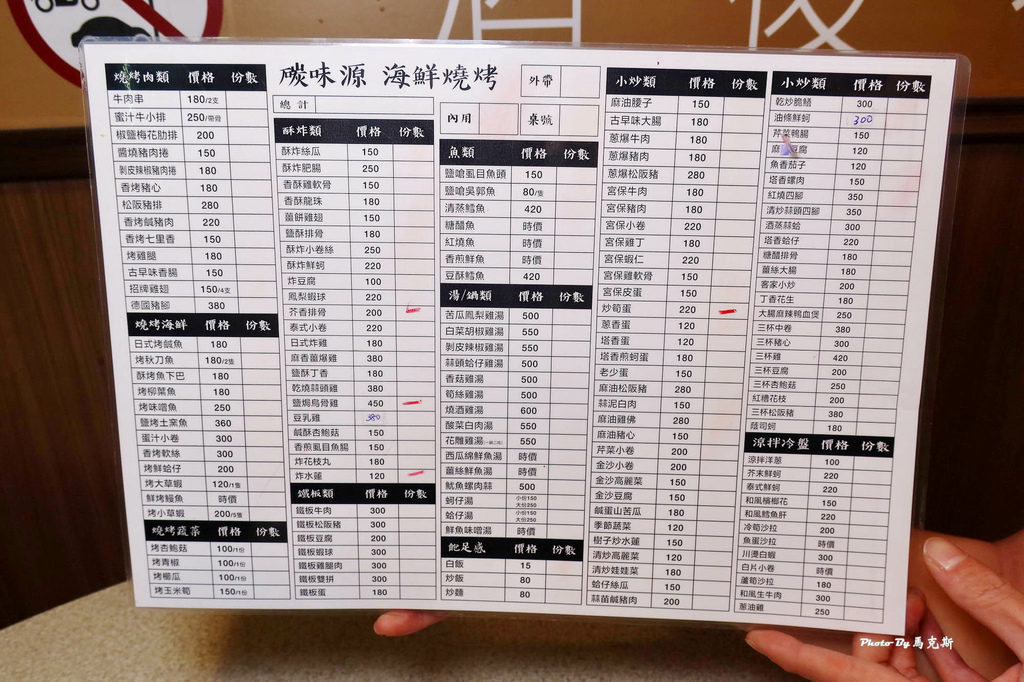 碳味源 海鮮燒烤
外帶
總計
內用 桌號
燒烤肉類 價格 份數
牛肉串 180/2支
蜜汁牛小排 250/帶骨
椒鹽梅花肋排 200
醬燒豬肉捲 150
剝皮辣椒豬肉捲 180
香烤豬心 180
松阪豬排 280
香烤鹹豬肉 220
香烤七里香 150
烤雞腿 180
古早味香腸 150
招牌雞翅 150/4支
德國豬腳 380
燒烤海鮮 價格 份數
日式烤鹹魚 180
烤秋刀魚 180/2隻
酥烤魚下巴 180
烤柳葉魚 180
烤味噌魚 250
鹽烤土窯魚 360
蛋汁小卷 300
香烤軟絲 300
烤鮮蛤仔 200
烤大草蝦 120/1隻
鮮烤鰻魚 時價
烤小草蝦 200/5隻
燒烤蔬菜 價格 份數
烤杏鮑菇 100/1份
烤青椒 100/1份
烤櫛瓜 100/1份
烤玉米筍 150/1份
酥炸類 價格 份數
酥炸絲瓜 150
酥炸肥腸 250
香酥雞軟骨 150
香酥龍珠 180
薑餅雞翅 150
鹽酥排骨 180
酥炸小卷絲 250
酥炸鮮蚵 220
炸豆腐 100
鳳梨蝦球 220
芥香排骨 200
泰式小卷 220
日式炸雞 180
麻香薑爆雞 380
鹽酥丁香 180
乾燒蒜頭雞 380
鹽焗烏骨雞 450
豆乳雞 380
鹹酥杏鮑菇 150
香煎虱目魚腸 150
炸花枝丸 180
炸水蓮 120
鐵板類 價格 份數
鐵板牛肉 300
鐵板松阪豬 300
鐵板豆腐 200
鐵板蝦球 300
鐵板雞腿肉 300
鐵板雙拼 300
鐵板蛋 180
魚類 價格 份數
鹽嗆虱目魚頭 150
鹽嗆吳郭魚 80/隻
清蒸鱈魚 420
糖醋魚 時價
紅燒魚 時價
香煎鮮魚 時價
豆酥鱈魚 420
湯/鍋類 價格 份數
苦瓜鳳梨雞湯 500
白菜胡椒雞湯 550
剝皮辣椒雞湯 550
蒜頭蛤仔雞湯 500
香菇雞湯 500
筍絲雞湯 500
燒酒雞湯 600
酸菜白肉湯 550
花雕雞湯 550
西瓜綿鮮魚湯 時價
薑絲鮮魚湯 時價
魷魚螺肉蒜 500
蚵仔湯 小份150 大份250
蛤仔湯 小份150 大份250
鮮魚味噌湯 時價
飽足感 價格 份數
白飯 15
炒飯 80
炒麵 80
小炒類 價格 份數
麻油腰子 150
古早味大腸 180
蔥爆牛肉 180
蔥爆豬肉 180
蔥爆松阪豬 280
宮保牛肉 180
宮保豬肉 180
宮保小卷 220
宮保雞丁 180
宮保蝦仁 220
宮保雞軟骨 150
宮保皮蛋 150
炒筍蛋 220
蔥香蛋 120
塔香蛋 120
塔香煎蚵蛋 180
老少蛋 150
麻油松阪豬 280
蒜泥白肉 150
麻油雞佛 280
麻油豬心 180
芹菜小卷 200
金沙小卷 200
金沙高麗菜 150
金沙豆腐 150
鹹蛋山苦瓜 180
季節蔬菜 120
樹子炒水蓮 150
清炒高麗菜 120
清炒娃娃菜 180
蛤仔絲瓜 150
蒜苗鹹豬肉 200
小炒類 價格 份數
乾炒脆鱔 300
油條鮮蚵 300
芹菜鴨腸 150
麻 豆腐 120
魚香茄子 120
塔香螺肉 150
紅燒四腳 350
清炒蒜頭四腳 350
酒蒸蒜蛤 300
塔香蛤仔 220
糖醋排骨 180
薑絲大腸 180
客家小炒 200
丁香花生 180
大腸麻辣鴨血煲 250
三杯中卷 380
三杯豬心 300
三杯雞 420
三杯豆腐 200
三杯杏鮑菇 250
紅糟花枝 200
三杯松阪豬 380
蔭司蚵 180
涼拌冷盤 價格 份數
涼拌洋蔥 100
芥末鮮蚵 220
泰式鮮蚵 220
和風檳榔花 150
和風鱈魚肝 220
冷筍沙拉 時價
魚蛋沙拉 時價
川燙白蝦 300
白片小卷 時價
蘆筍沙拉 180
和風生牛肉 300
蔥油雞 250
Photo By 馬克斯